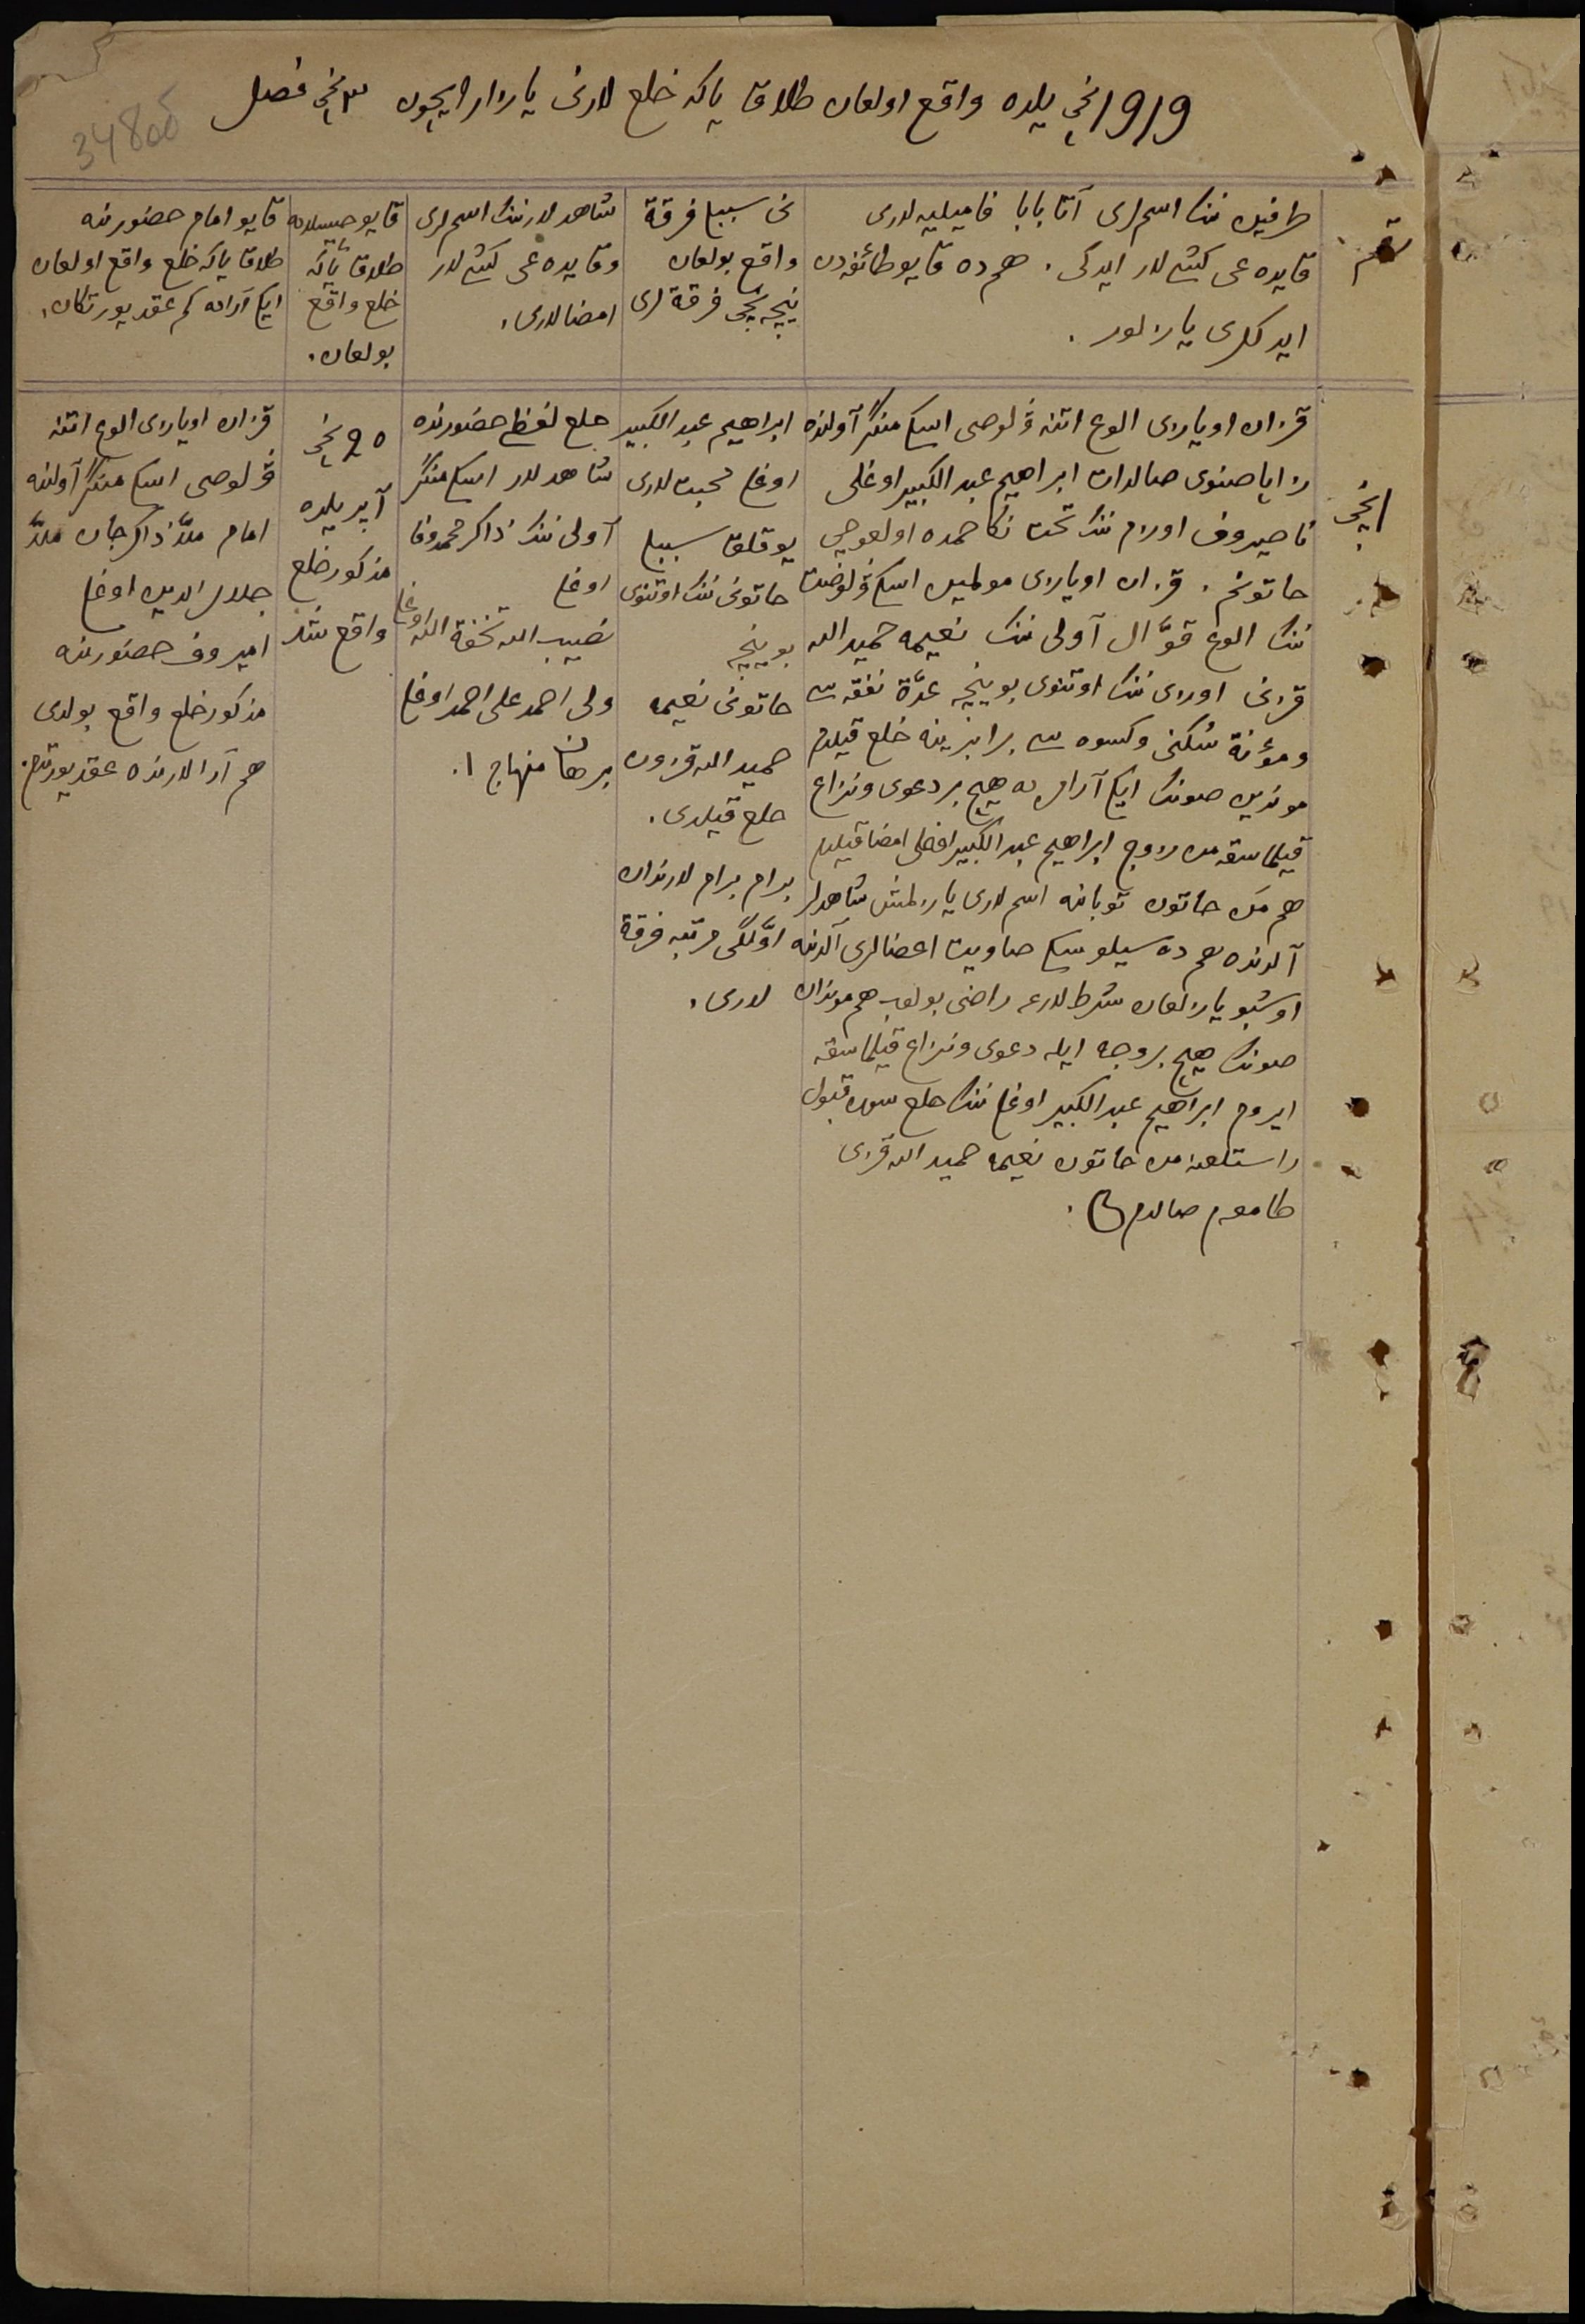 ١٩١٩ نچی یلده واقع اولغان طلاق یاکه خلع لارنی یازار ایچون ٣نچی فصل
34806
رقم
طرفین ننک اسملری آتا بابا فامیلیه لاری
قایده غی کشی لار ایدکی . هم ده قایو طائفه دن
ایدکلری یازلور .
نی سببلی فرقة
واقع بولغان
نیچه نچی فرقة لری
شاهدلارننک اسملری
وقایده غی کشی لار
امضالاری .
قایو حیسلاده
طلاق یاکه
خلع واقع
بولغان .
قایو امام حضورنده
طلاق یاکه خلع واقع اولغان
ایکی آراده کم عقد یورتکان .
١نچی
قزان اویازی الوغ اتنه ولوصی اسکی منگر آولنده
زاپاصنوی صالدات ابراهیم عبد الکبیر اوغلی
ناصیروف اوزم ننک تحت نکاحمده اولغوچی
خاتونم . قزان اویازی مولمین اسکی ولوصت
ننک الوغ قوال آولی ننک نعیمه حمید الله
قزنی اوزی ننک اوتنوی بوینچه عدّة نفقه سی
ومؤنة سکنی وکسوه سی برابرینه خلع قیلدم
موندین صونک ایکی آرامزده هیچ بر دعوی ونزاع
قیلماسقه من زوج ابراهیم عبد الکبیر اوغلی امضا قیلدم
هم من خاتون توبانده اسملاری یازلمش شاهدلر
آلدنده هم ده سیلوسکی صاویت اعضالری آلدنده
اوشبو یازلغان شرطلارغه راضی بولوب هم موندان
صونک هیچ بر وجه ایله دعوی ونزاع قیلماسقه
ایرم ابراهیم عبد الکبیر اوغلی ننک خلع سوزن قبول
راستلغنه من خاتون نعیمه حمید الله قزی
طامغام صالدم .
ابراهیم عبد الکبیر
اوغلی محبت لاری
یوقلق سببلی
خاتونی ننک اوتنوی
بوینچه
خاتونی نعیمه
حمید الله قزون
خلع قیلدی .
برام برام لارندان
اوّلگی مرتبه فرقة
لاری .
خلع لفظی حضورنده
شاهدلار اسکی منگر
آولی ننک ذاکر محمدوفا
اوغلی
نصیب الله تحفة الله اوغلی
ولی احمد علی احمد اوغلی
برهان منهاج ا .
٢٥ نچی
آپریلده
مذکور خلع
واقع شد
قزان اویازی الوغ اتنه
ولوصی اسکی منگر آولنده
امام ملّا ذاکرجان ملّا
جلال الدین اوغلی
امیروف حضورنده
مذکور خلع واقع بولدی
هم آرالارنده عقد یورتدم .